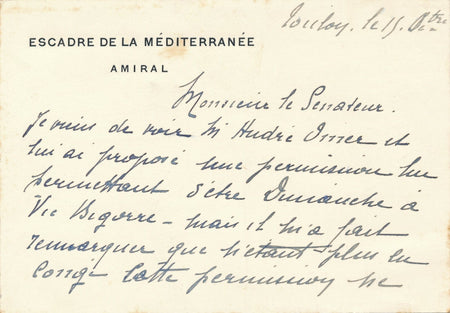 Toulon, le 15. 8bre
ESCADRE DE LA MÉDITERRANÉE
AMIRAL
Monsieur le Senateur.
Je viens de voir M André et
lui ai proposé une permission lui
permettant d'être Dimanche à
Vic Bigorre - mais il m'a fait
remarquer que n'étant plus en
Congé cette permission ne